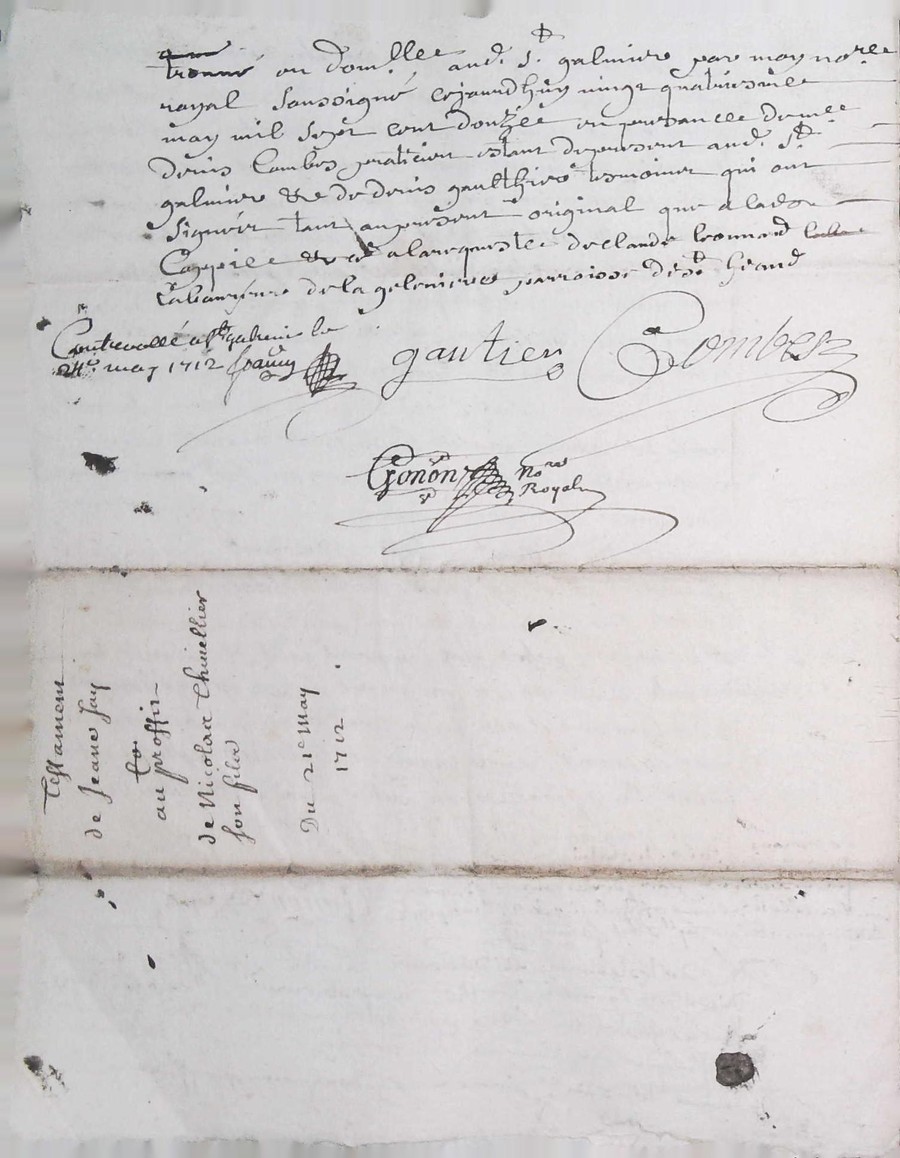 trouvé en domlle aud. St. galmier par moy nore
royal soussigné cejourdhuy vingt quatriesme
may mil sept cent douzze en presance de me
denis Combes praticien estant de present aud. St.
galmier & de denis gaulthier tesmoins qui ont
signéz tant au present original que a lad.
Coppie & ce a la requeste de claude
de la parroisse de St.
Controollé a St galmier le
24e may 1712
gautier Combes
Gonon Nore
Royal
Testament
de Jeane fay
au proffit
de Nicolas Thivellier
son fils
Du 21e May
1712